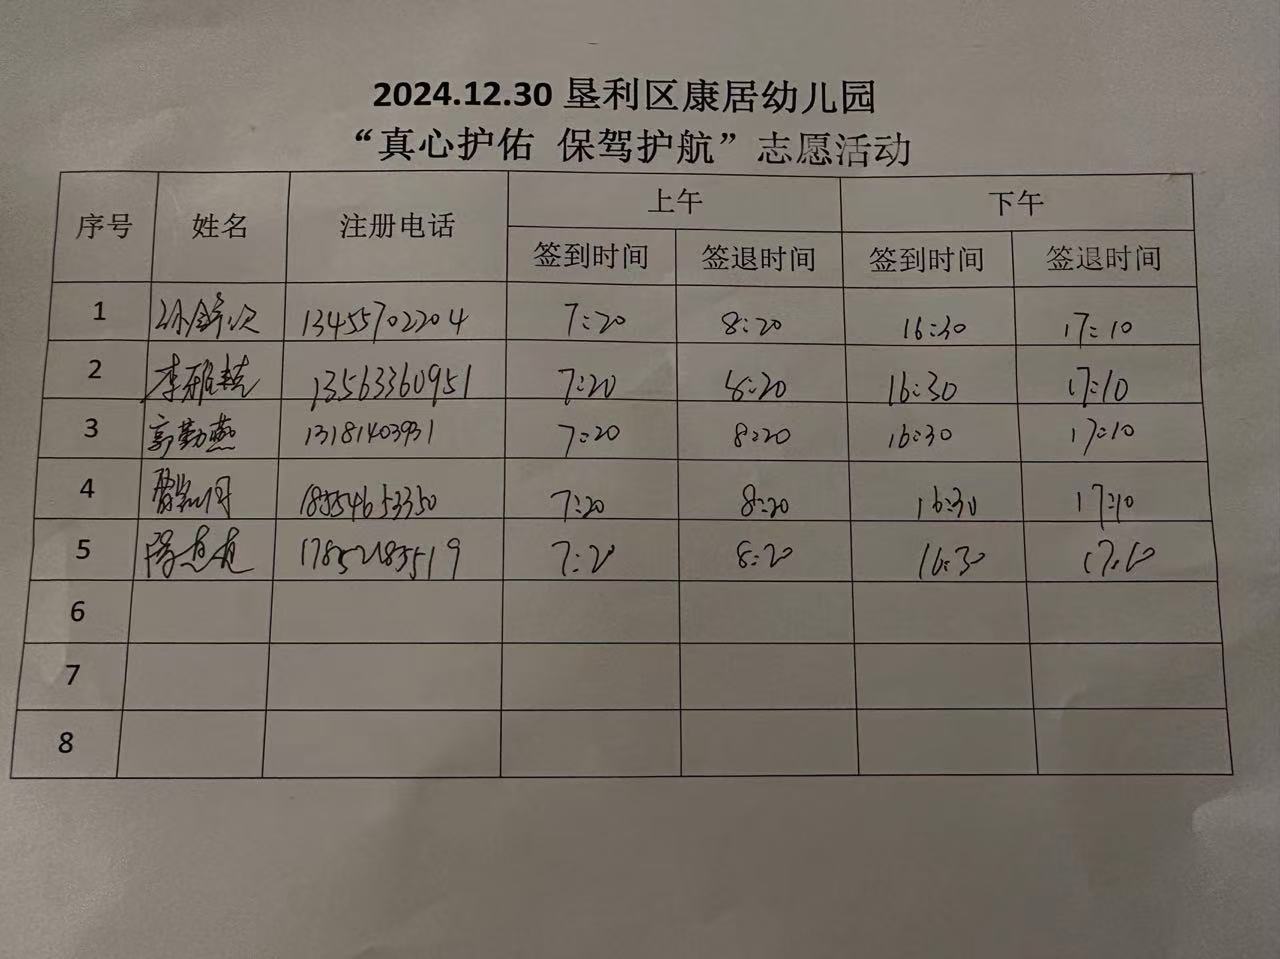 2024.12.30 垦利区康居幼儿园
“真心护佑 保驾护航”志愿活动
序号 姓名 注册电话 上午 下午
签到时间 签退时间 签到时间 签退时间
1 13455702204 7:20 8:20 16:30 17:10
2 李雅 13563360951 7:20 8:20 16:30 17:10
3 郭勤燕 13181403931 7:20 8:20 16:30 17:10
4 18554653350 7:20 8:20 16:30 17:10
5 17852183519 7:20 8:20 16:30 17:10
6
7
8